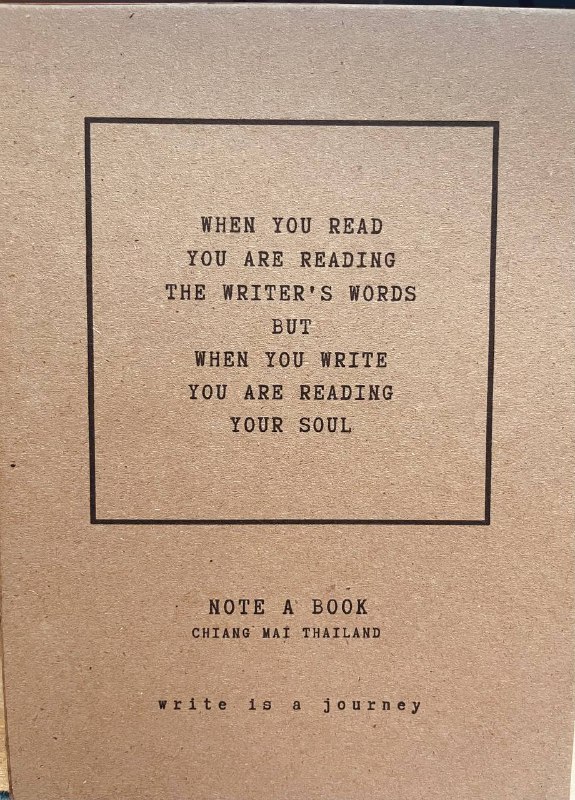 WHEN YOU READ
YOU ARE READING
THE WRITER'S WORDS
BUT
WHEN YOU WRITE
YOU ARE READING
YOUR SOUL
NOTE A BOOK
CHIANG MAI THAILAND
write is a journey